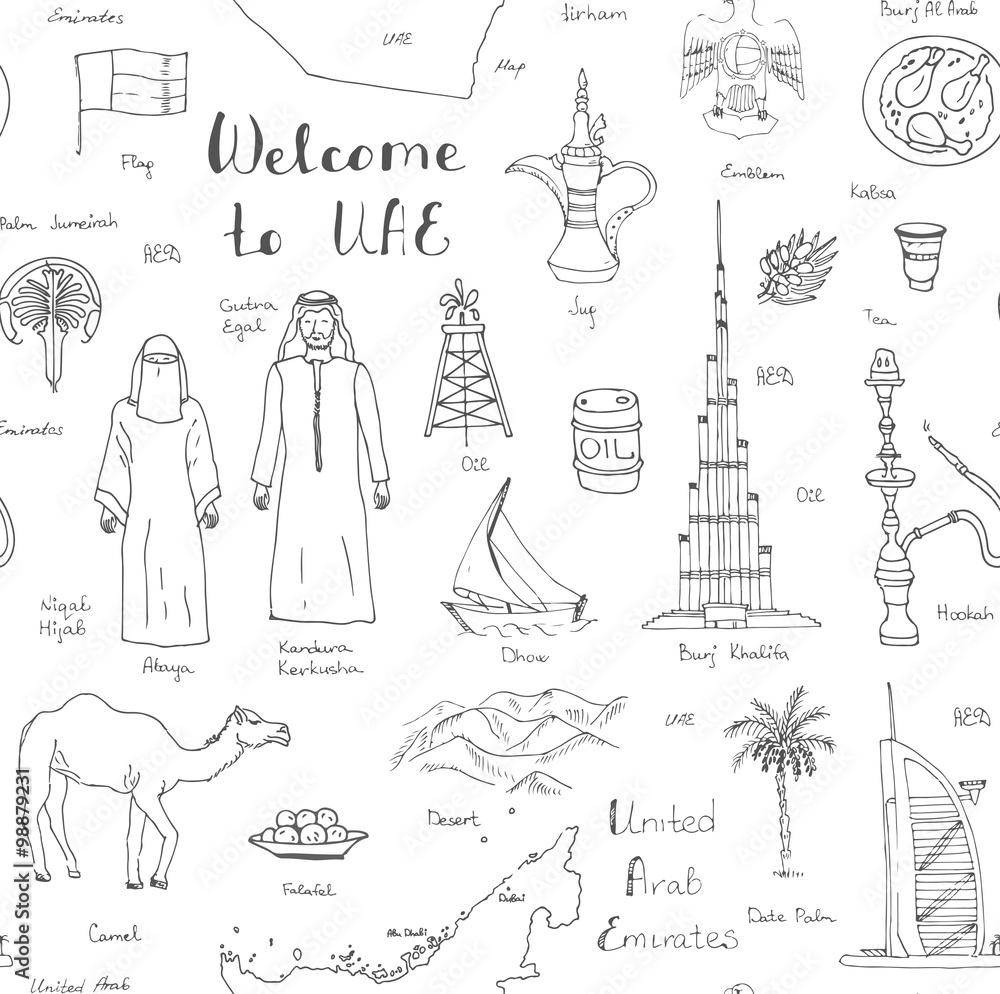 Emirates
UAE
Map
dirham
Burj Al Arab
Flag
Welcome
to UAE
Emblem
Kabsa
Palm Jumeirah
AED
Gutra
Egal
Jug
Tea
AED
Oil
OIL
Oil
Emirates
Niqab
Hijab
Abaya
Kandura
Kerkusha
Dhow
Burj Khalifa
Hookah
UAE
AED
Desert
United
Arab
Emirates
Falafel
Dubai
Abu Dhabi
Date Palm
Camel
United Arab
Adobe Stock | #98879231
Adobe Stock